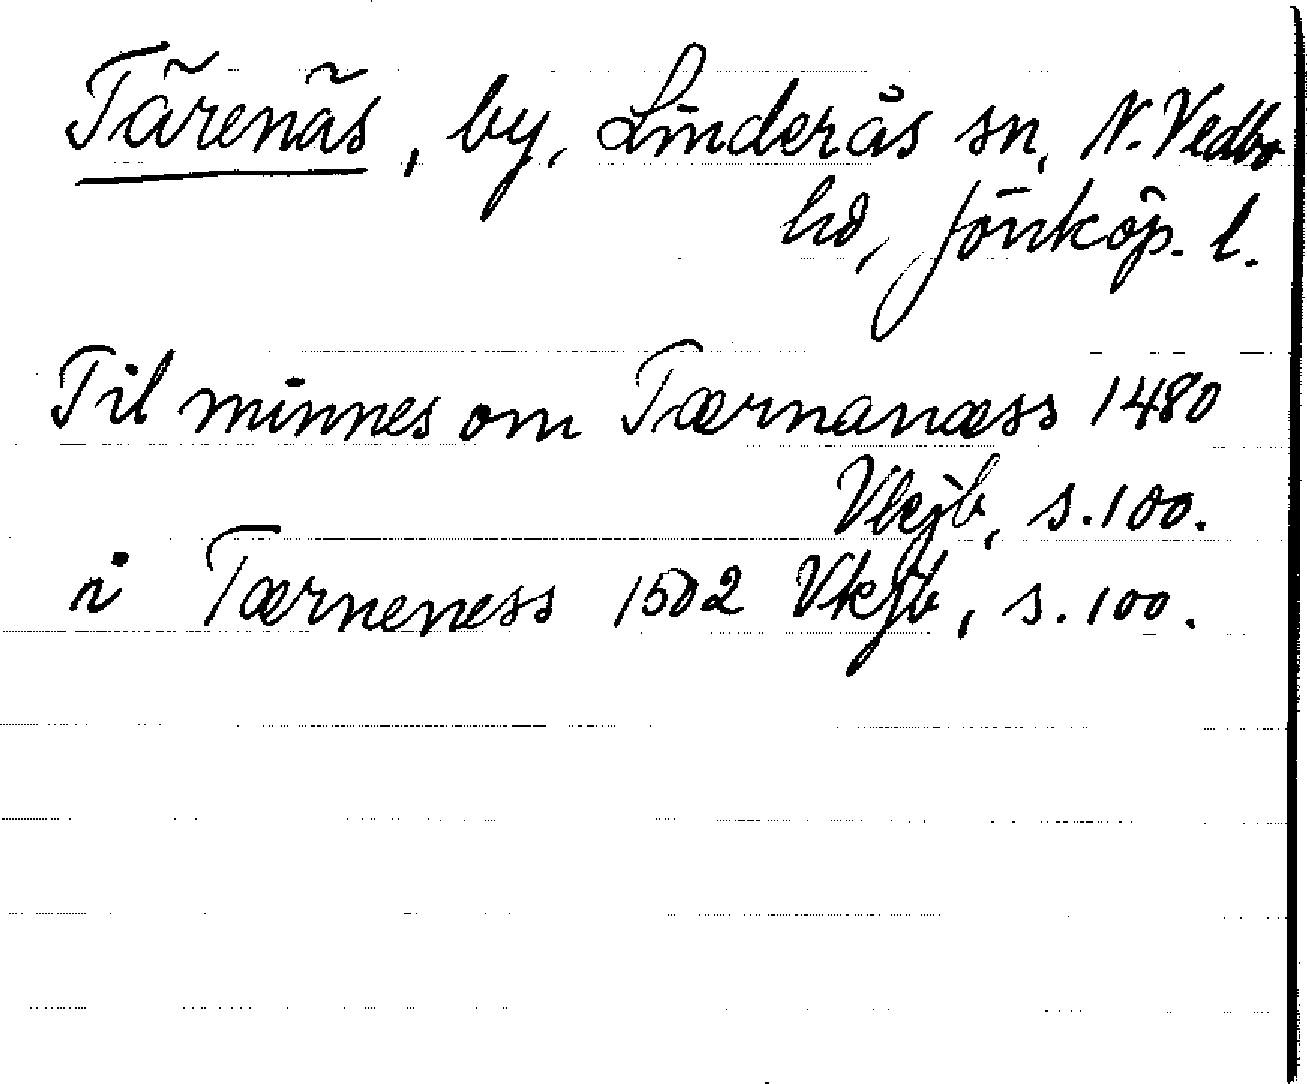 Tärenäs, by, Linderås sn, N. Vedbo
hd, Jönköp. l.
Til minnes om Tærnanæss 1480
Vkjb, s. 100.
i Tærneness 1502 Vkjb, s. 100.